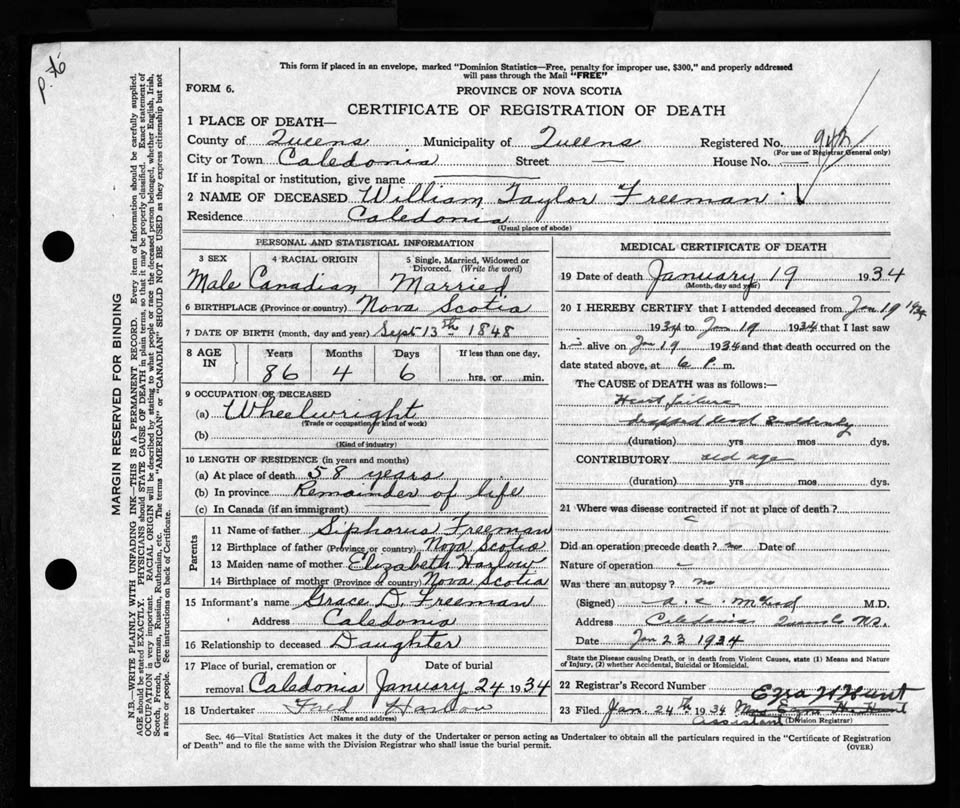 This form if placed in an envelope, marked "Dominion Statistics—Free, penalty for improper use, $300," and properly addressed
will pass through the Mail "FREE"
FORM 6.
PROVINCE OF NOVA SCOTIA
CERTIFICATE OF REGISTRATION OF DEATH
1 PLACE OF DEATH—
County of Queens Municipality of Queens Registered No.
(For use of Registrar General only)
City or Town Caledonia Street — House No. —
If in hospital or institution, give name
2 NAME OF DECEASED William Taylor Freeman
Residence Caledonia
(Usual place of abode)
PERSONAL AND STATISTICAL INFORMATION
3 SEX 4 RACIAL ORIGIN 5 Single, Married, Widowed or Divorced. (Write the word)
Male Canadian Married
6 BIRTHPLACE (Province or country) Nova Scotia
7 DATE OF BIRTH (month, day and year) Sept 13th 1848
8 AGE IN Years Months Days If less than one day,
86 4 6 hrs. or min.
9 OCCUPATION OF DECEASED
(a) Wheelwright
(Trade or occupation or kind of work)
(b)
(Kind of industry)
10 LENGTH OF RESIDENCE (in years and months)
(a) At place of death 58 years
(b) In province Remainder of life
(c) In Canada (if an immigrant)
Parents
11 Name of father Siphorus Freeman
12 Birthplace of father (Province or country) Nova Scotia
13 Maiden name of mother Elizabeth Harlow
14 Birthplace of mother (Province or country) Nova Scotia
15 Informant's name Grace D. Freeman
Address Caledonia
16 Relationship to deceased Daughter
17 Place of burial, cremation or removal Caledonia Date of burial January 24 1934
18 Undertaker Harlow
(Name and address)
MEDICAL CERTIFICATE OF DEATH
19 Date of death January 19 1934
(Month, day and year)
20 I HEREBY CERTIFY that I attended deceased from Jan 19 1934
1934 to Jan 19 1934 that I last saw
h alive on Jan 19 1934 and that death occurred on the
date stated above, at 6 P. m.
The CAUSE of DEATH was as follows:—
Heart failure
dropped dead suddenly
(duration) yrs mos dys.
CONTRIBUTORY old age
(duration) yrs. mos dys.
21 Where was disease contracted if not at place of death?
Did an operation precede death? no Date of
Nature of operation
Was there an autopsy? no
(Signed) M.D.
Address Caledonia Queens Co N.S.
Date Jan 23 1934
State the Disease causing Death, or in death from Violent Causes, state (1) Means and Nature
of Injury, (2) whether Accidental, Suicidal or Homicidal.
22 Registrar's Record Number
23 Filed Jan. 24th 1934 Ezra W Hunt
Mrs Ezra W. Hunt
Assistant (Division Registrar)
Sec. 46—Vital Statistics Act makes it the duty of the Undertaker or person acting as Undertaker to obtain all the particulars required in the "Certificate of Registration
of Death" and to file the same with the Division Registrar who shall issue the burial permit.
(OVER)
MARGIN RESERVED FOR BINDING
N.B.—WRITE PLAINLY WITH UNFADING INK—THIS IS A PERMANENT RECORD. Every item of information should be carefully supplied.
AGE should be stated EXACTLY. PHYSICIANS should STATE CAUSE OF DEATH in plain terms, so that it may be properly classified. Exact statement of
OCCUPATION is very important. RACIAL ORIGIN will be described by stating to what people or race the deceased person belonged, whether English, Irish,
Scotch, French, German, Russian, Ruthenian, etc. The terms "AMERICAN" or "CANADIAN" SHOULD NOT BE USED as they express citizenship but not
a race or people. See instructions on back of Certificate.